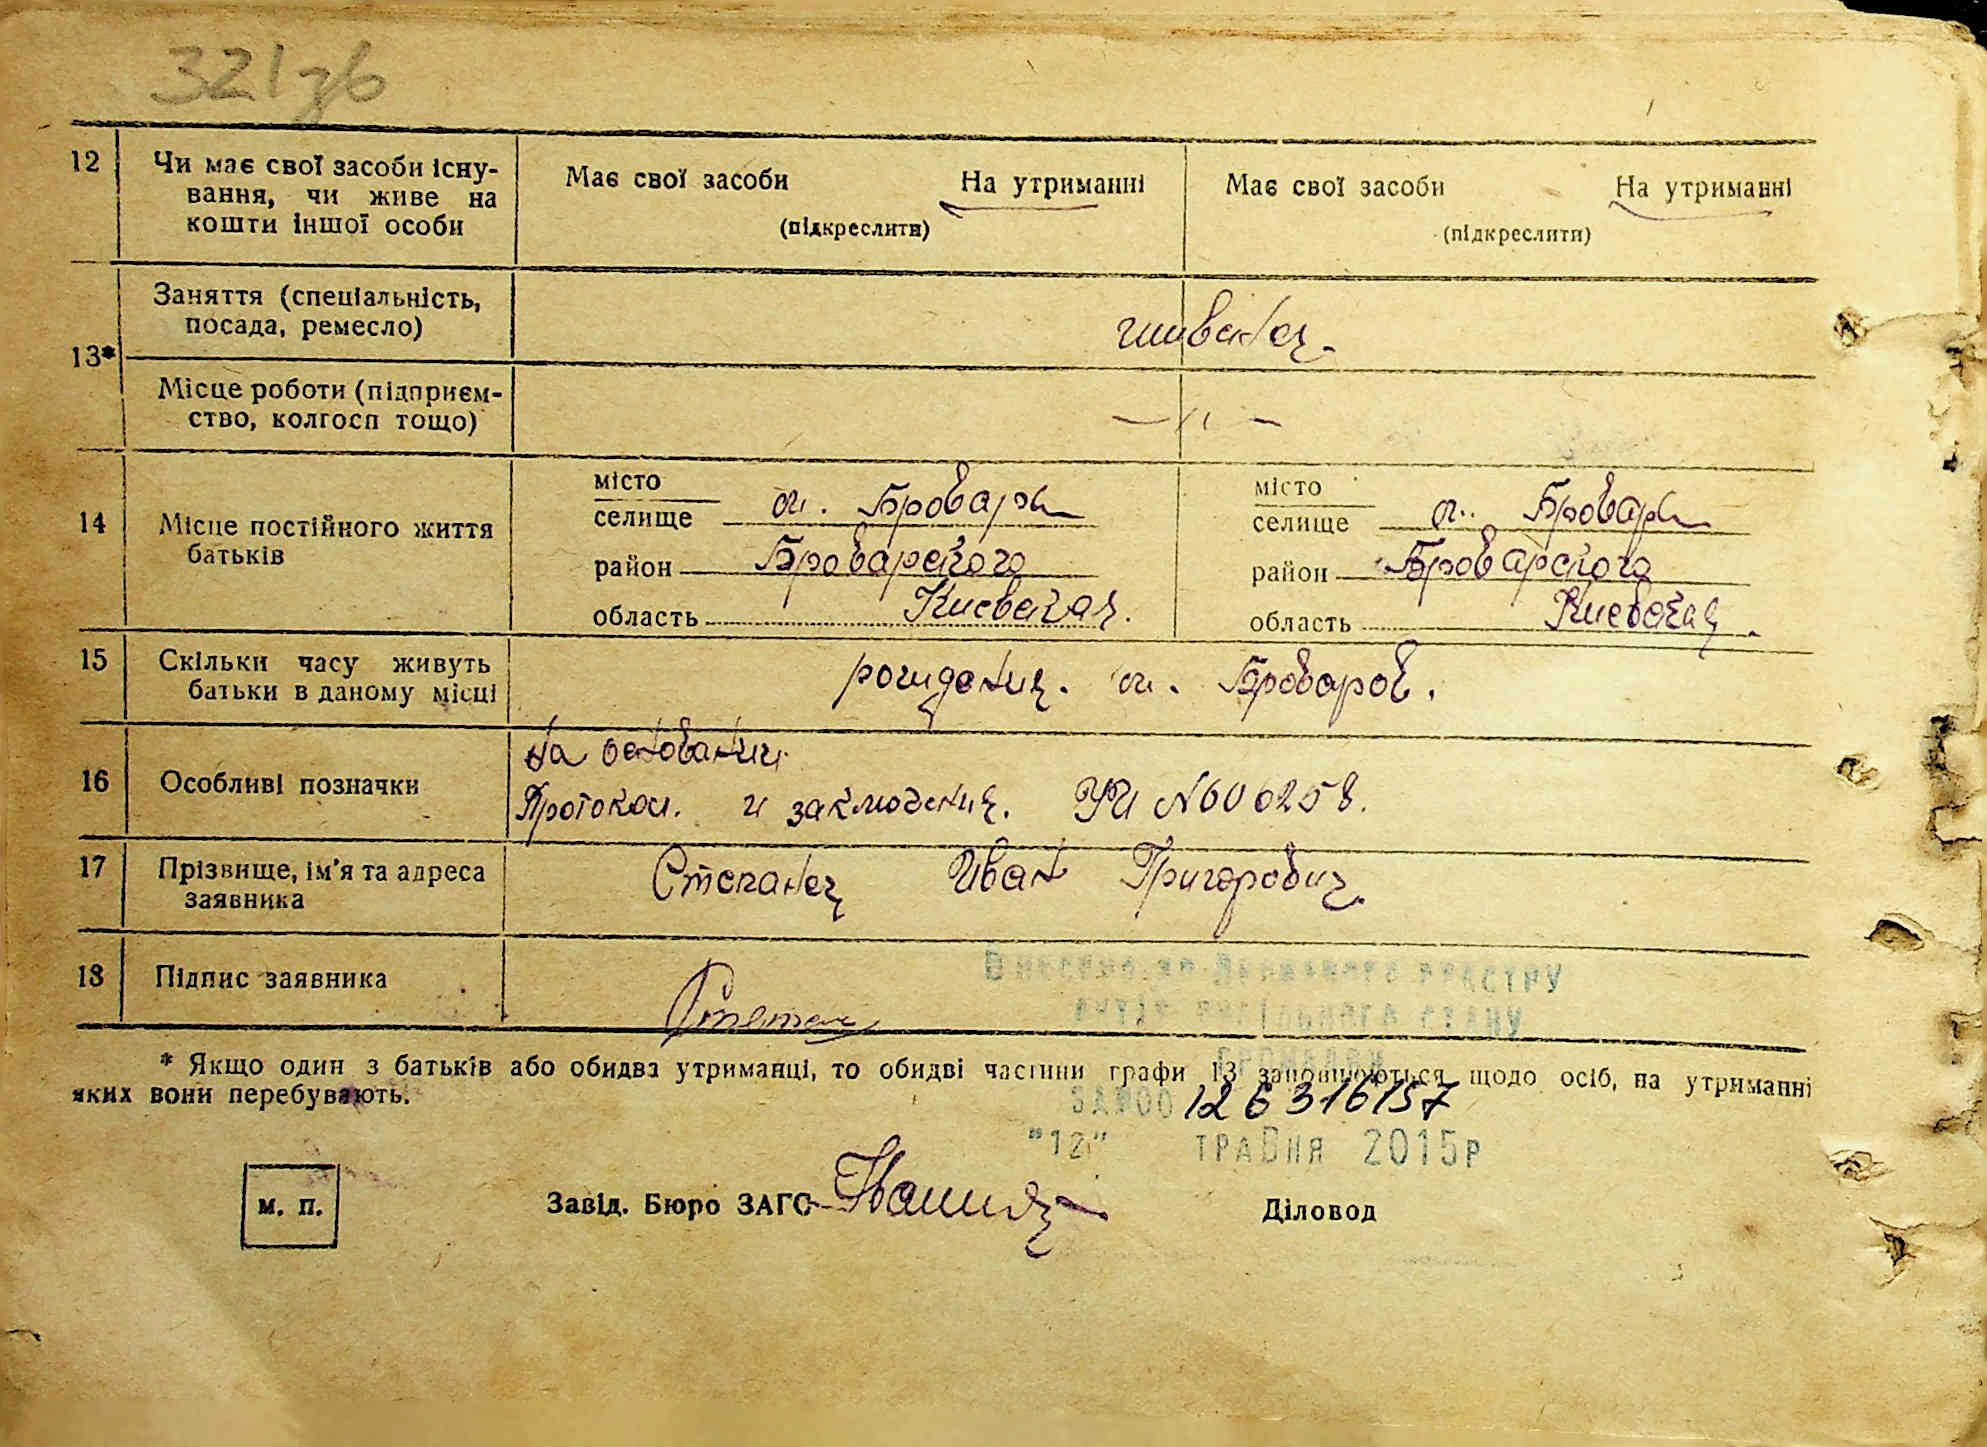 321зв
12 Чи має свої засоби існу-
вання, чи живе на
кошти іншої особи
Має свої засоби На утриманні
(підкреслити)
Має свої засоби На утриманні
(підкреслити)
13*
Заняття (спеціальність,
посада, ремесло)
Місце роботи (підприєм-
ство, колгосп тощо)
— " —
14 Місце постійного життя
батьків
місто
селище м. Бровары
район Броварского
область Киевская.
місто
селище м. Бровары
район Броварского
область Киевская.
15 Скільки часу живуть
батьки в даному місці
рождения. м. Броваров.
16 Особливі позначки
На основании
Протокол. и заключения.
17 Прізвище, ім'я та адреса
заявника
Степанец Иван Григорович.
18 Підпис заявника
Внесено до Державного реєстру
актів цивільного стану
громадян
* Якщо один з батьків або обидва утриманці, то обидві частини графи 13 заповнюються щодо осіб, на утриманні
яких вони перебувають.
ЗА №00126316157
"12" травня 2015р
М. П.
Завід. Бюро ЗАГС
Діловод